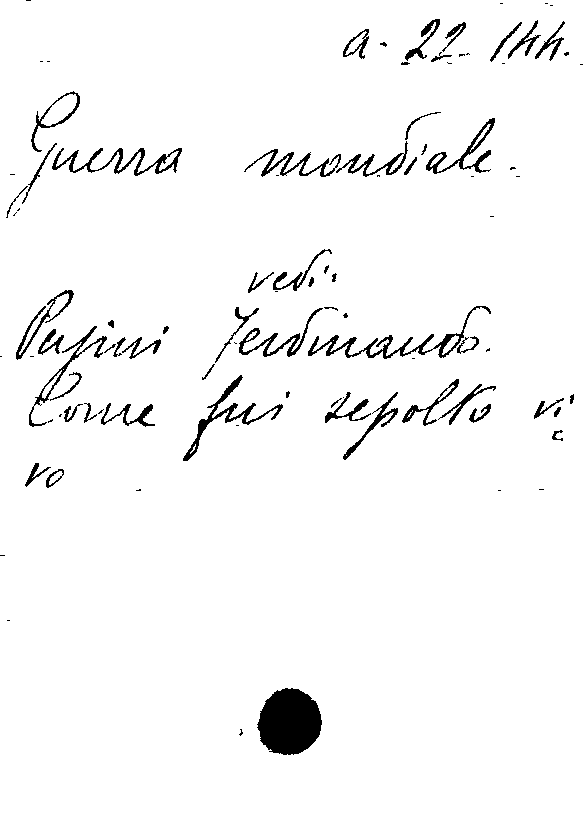 a. 22 144.
Guerra mondiale.
vedi:
Pasini Ferdinando.
Come fui sepolto vi-
vo